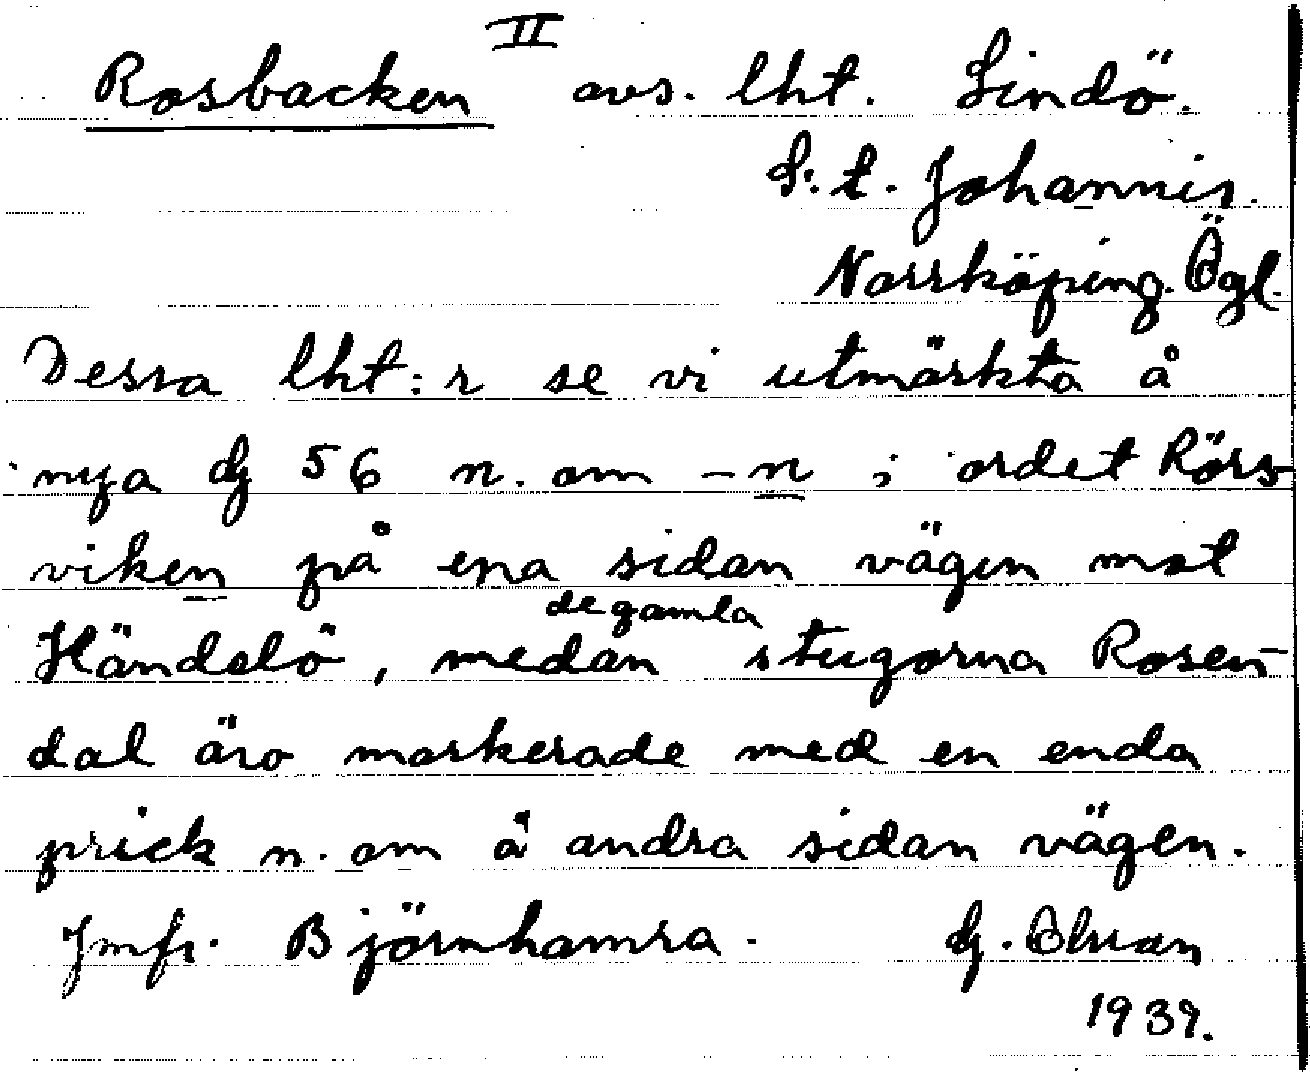 Rosbacken II avs. lht. Lindö.
S:t. Johannis.
Norrköping. Ögl.
Dessa lht:r se vi utmärkta å
nya G 56 n. om -n i ordet Rörs-
viken på ena sidan vägen mot
Händelö, medan de gamla stugorna Rosen-
dal äro markerade med en enda
prick n. om å andra sidan vägen.
Jmfr. Björnhamra. G.
1939.